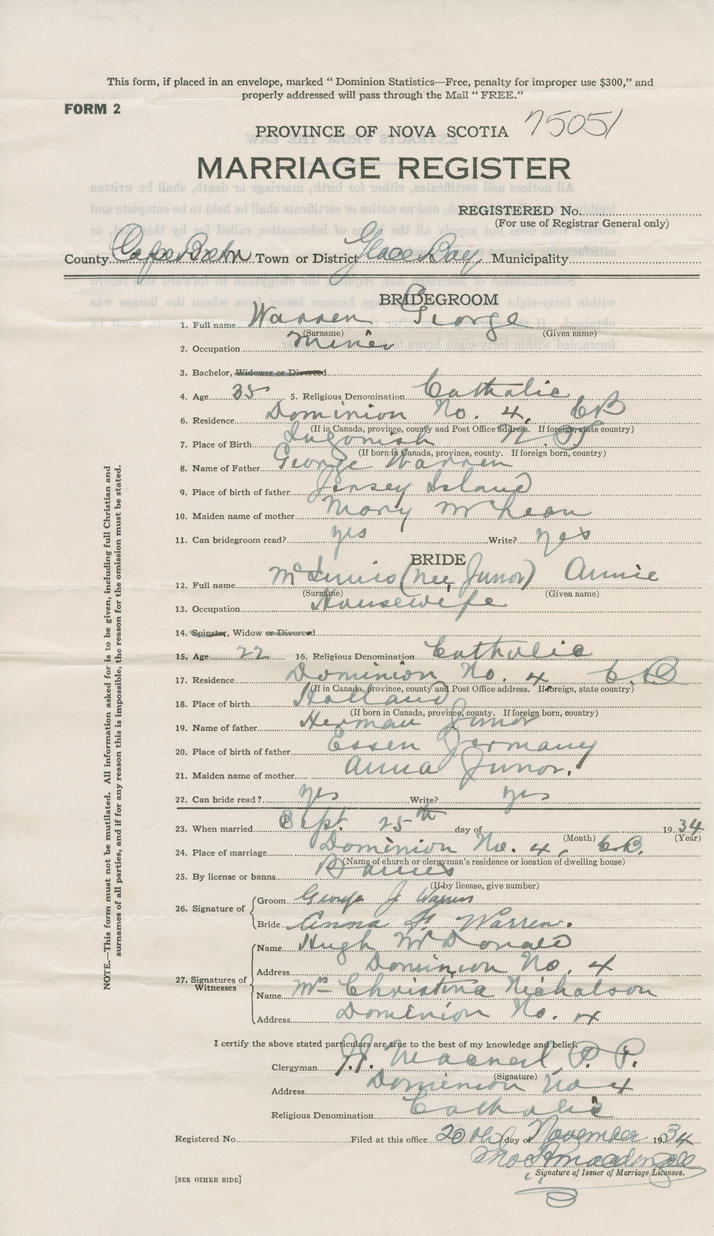 This form, if placed in an envelope, marked " Dominion Statistics—Free, penalty for improper use $300," and
properly addressed will pass through the Mail " FREE."
FORM 2
PROVINCE OF NOVA SCOTIA 75051
MARRIAGE REGISTER
REGISTERED No.
(For use of Registrar General only)
County Cape Breton Town or District Glace Bay Municipality
BRIDEGROOM
1. Full name Warren George
(Surname) (Given name)
2. Occupation Miner
3. Bachelor, Widower or Divorced
4. Age 35 5. Religious Denomination Catholic
6. Residence Dominion No. 4, CB
(If in Canada, province, county and Post Office address. If foreign, state country)
7. Place of Birth Ingonish N. S
(If born in Canada, province, county. If foreign born, country)
8. Name of Father George Warren
9. Place of birth of father Jersey Island
10. Maiden name of mother Mary McLean
11. Can bridegroom read? yes Write? yes
BRIDE
12. Full name McInnis (nee Junor) Annie
(Surname) (Given name)
13. Occupation Housewife
14. Spinster, Widow or Divorced
15. Age 22 16. Religious Denomination Catholic
17. Residence Dominion No. 4 C.B
(If in Canada, province, county and Post Office address. If foreign, state country)
18. Place of birth Holland
(If born in Canada, province, county. If foreign born, country)
19. Name of father Herman Junor
20. Place of birth of father Essen Germany
21. Maiden name of mother Anna Junor.
22. Can bride read ? yes Write? yes
23. When married Sept. 25th day of 1934
(Month) (Year)
24. Place of marriage Dominion No. 4, C.B.
(Name of church or clergyman's residence or location of dwelling house)
25. By license or banns Banns
(If by license, give number)
26. Signature of Groom George J Warren
Bride Anna Warren.
27. Signatures of Witnesses Name Hugh McDonald
Address Dominion No. 4
Name Mrs Christina Nicholson
Address Dominion No. 4
I certify the above stated particulars are true to the best of my knowledge and belief.
Clergyman Macneil, P. P.
(Signature)
Address Dominion No 4
Religious Denomination Catholic
Registered No Filed at this office 20th day of November 1934
Signature of Issuer of Marriage Licenses.
[SEE OTHER SIDE]
NOTE.—This form must not be mutilated. All information asked for is to be given, including full Christian and
surnames of all parties, and if for any reason this is impossible, the reason for the omission must be stated.